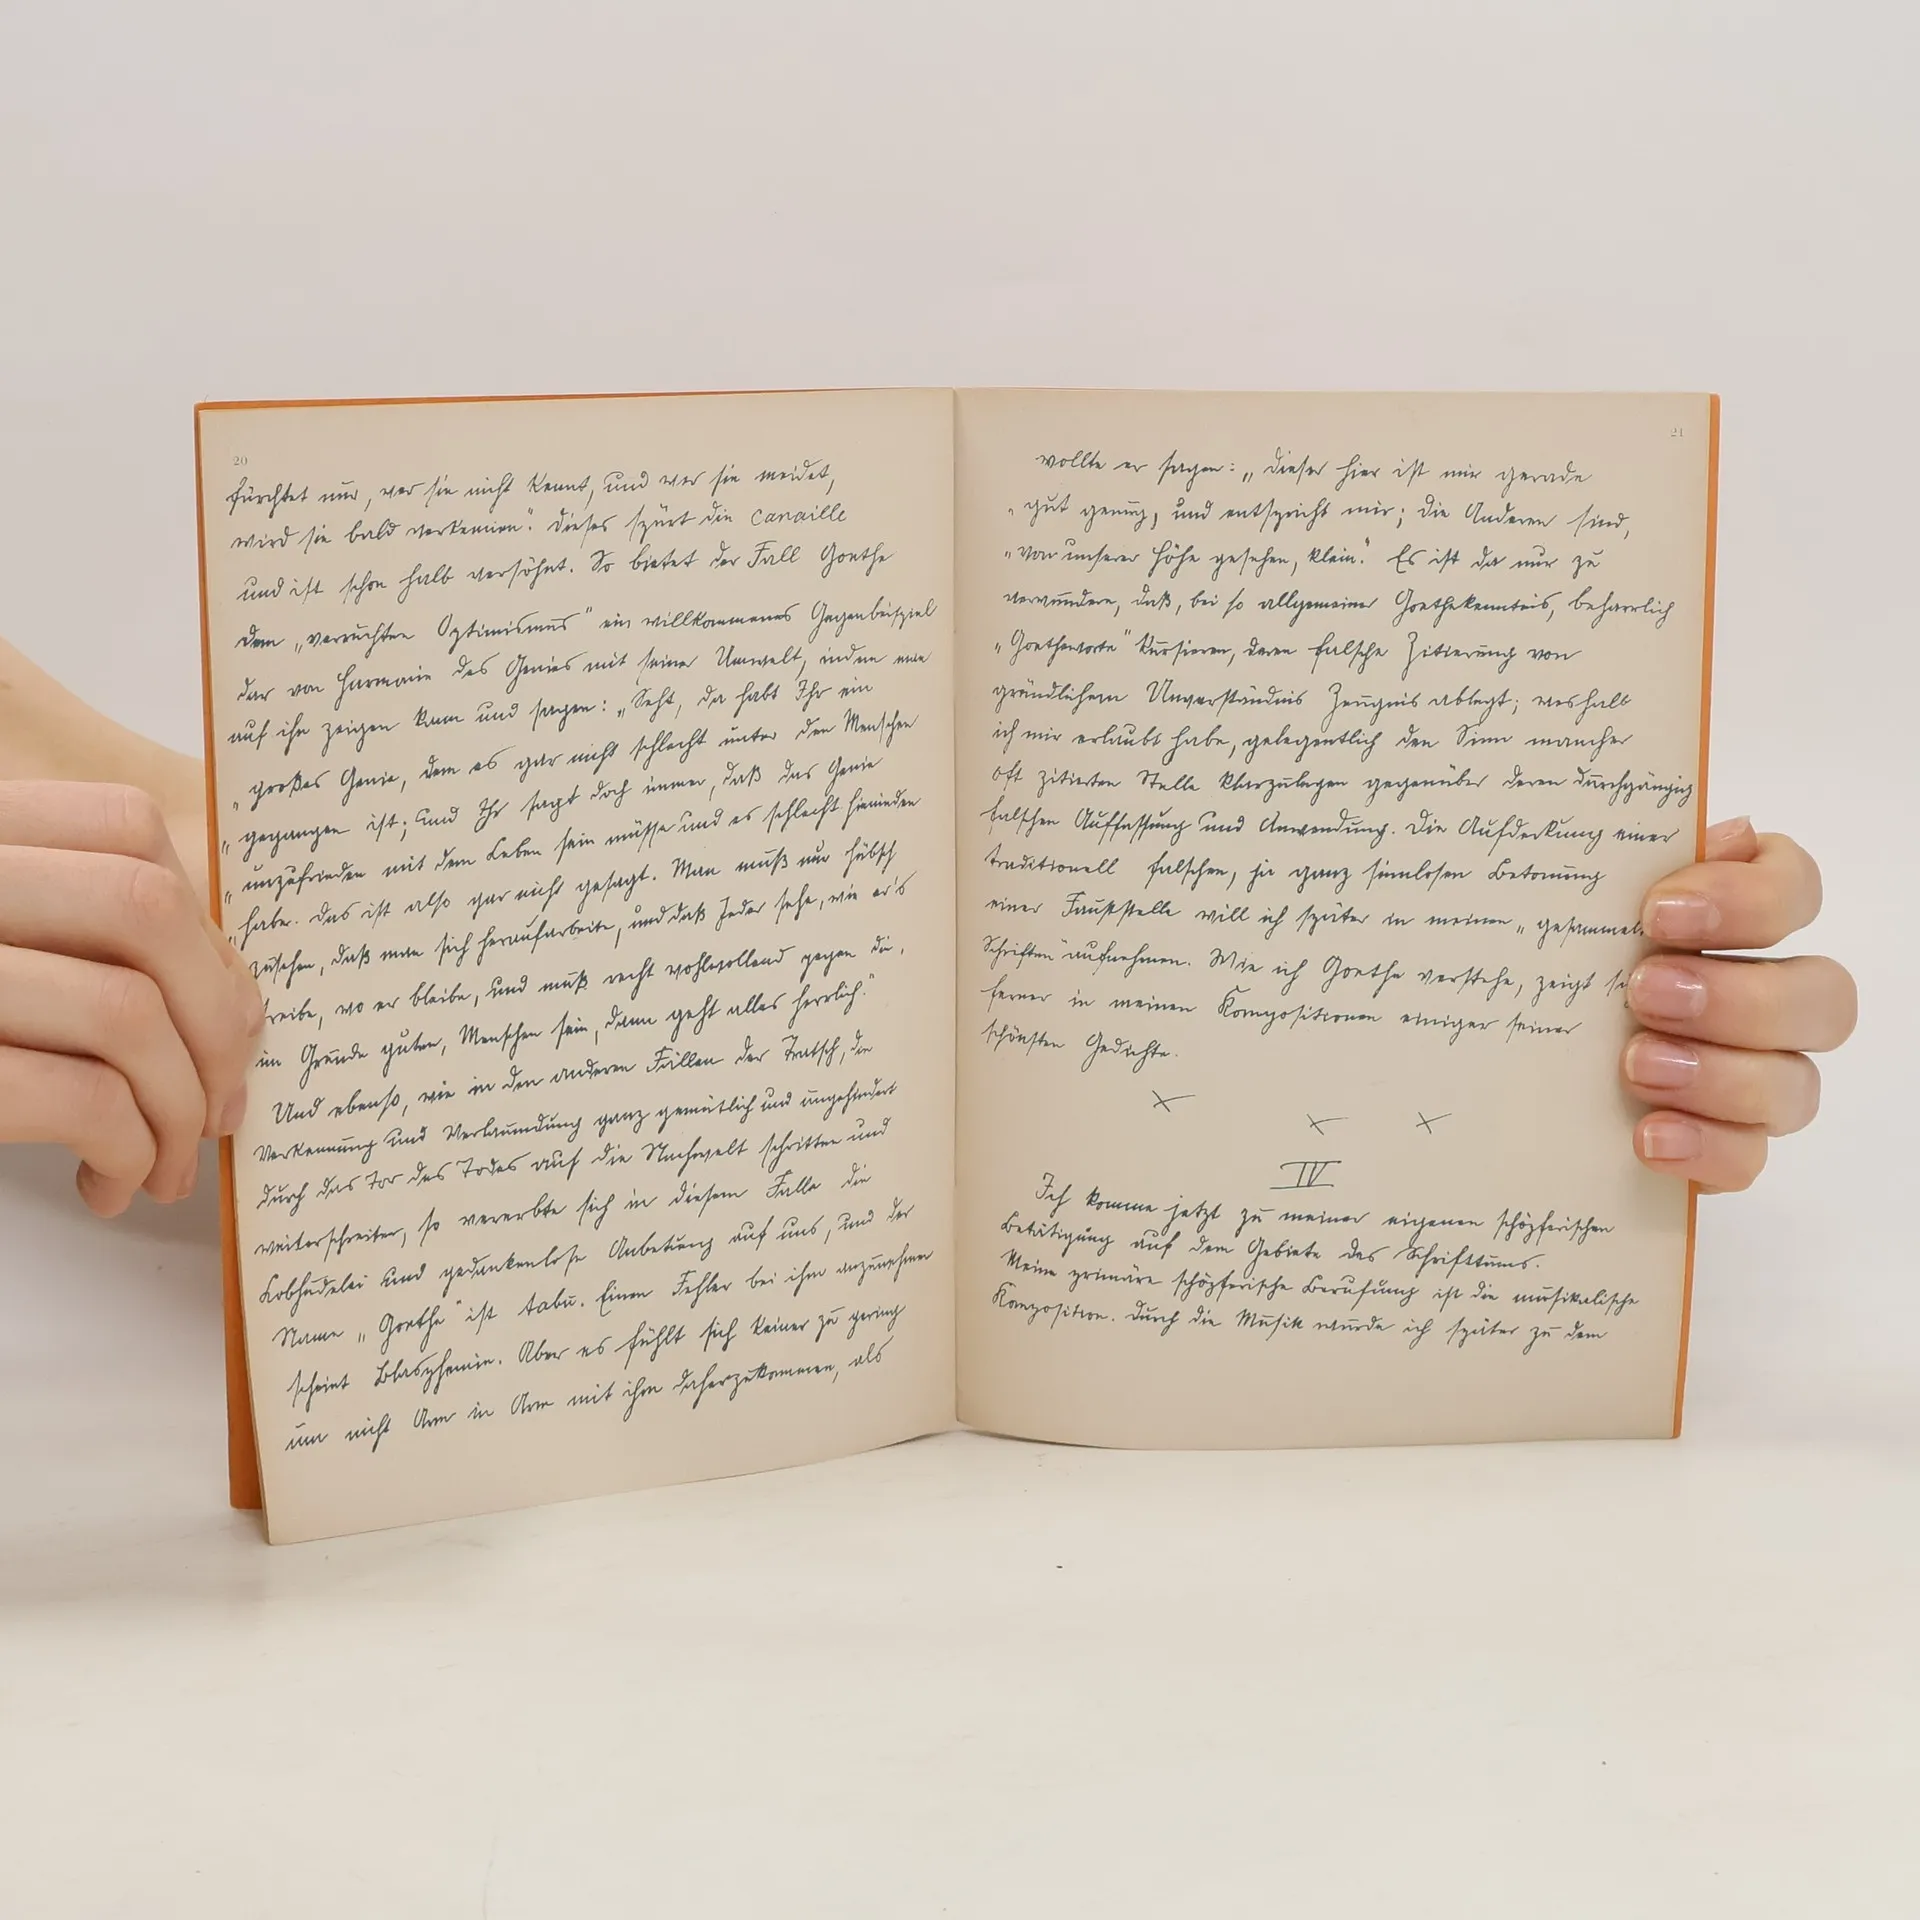 20
fürchtet nur, wer sie nicht kennt, und wer sie meidet,
wird sie bald verkennen". Dieses spürt die canaille
und ist schon halb versöhnt. So bietet der Fall Goethe
dem „verruchten Optimismus" ein willkommenes Gegenbeispiel
dar von Harmonie des Genies mit seiner Umwelt, indem man
auf ihn zeigen kann und sagen: „Seht, da habt Ihr ein
„großes Genie, dem es gar nicht schlecht unter den Menschen
„gegangen ist; und Ihr sagt doch immer, daß das Genie
„unzufrieden mit dem Leben sein müsse und es schlecht hienieden
„habe. Das ist also gar nicht gesagt. Man muß nur hübsch
zusehen, daß man sich heraufarbeite, und daß Jeder sehe, wie er's
treibe, wo er bleibe, und muß recht wohlwollend gegen die,
im Grunde guten, Menschen sein, dann geht alles herrlich."
Und ebenso, wie in den anderen Fällen der Tratsch, die
Verkennung und Verleumdung ganz gemütlich und ungehindert
durch das Tor des Todes auf die Nachwelt schritten und
weiterschreiten, so vererbte sich in diesem Falle die
Lobhudelei und gedankenlose Anbetung auf uns, und der
Name „Goethe" ist tabu. Einen Fehler bei ihm anzunehmen
scheint Blasphemie. Aber es fühlt sich keiner zu gering
um nicht Arm in Arm mit ihm daherzukommen, als
21
wollte er sagen: „Dieser hier ist mir gerade
„gut genug, und entspricht mir; die Anderen sind,
„von unserer Höhe gesehen, klein." Es ist da nur zu
verwundern, daß, bei so allgemeiner Goethekenntnis, beharrlich
„Goetheworte" kursieren, deren falsche Zitierung von
gründlichem Unverständnis Zeugnis ablegt; weshalb
ich mir erlaubt habe, gelegentlich den Sinn mancher
oft zitierten Stelle klarzulegen gegenüber deren durchgängig
falschen Auffassung und Anwendung. Die Aufdeckung einer
traditionell falschen, ja ganz sinnlosen Betonung
einer Fauststelle will ich später in meinen „gesammel
Schriften" aufnehmen. Wie ich Goethe verstehe, zeigt
ferner in meinen Kompositionen einiger seiner
schönsten Gedichte.
× × ×
IV
Ich komme jetzt zu meiner eigenen schöpferischen
Betätigung auf dem Gebiete des Schrifttums.
Meine primäre schöpferische Berufung ist die musikalische
Komposition. Durch die Musik wurde ich später zu dem